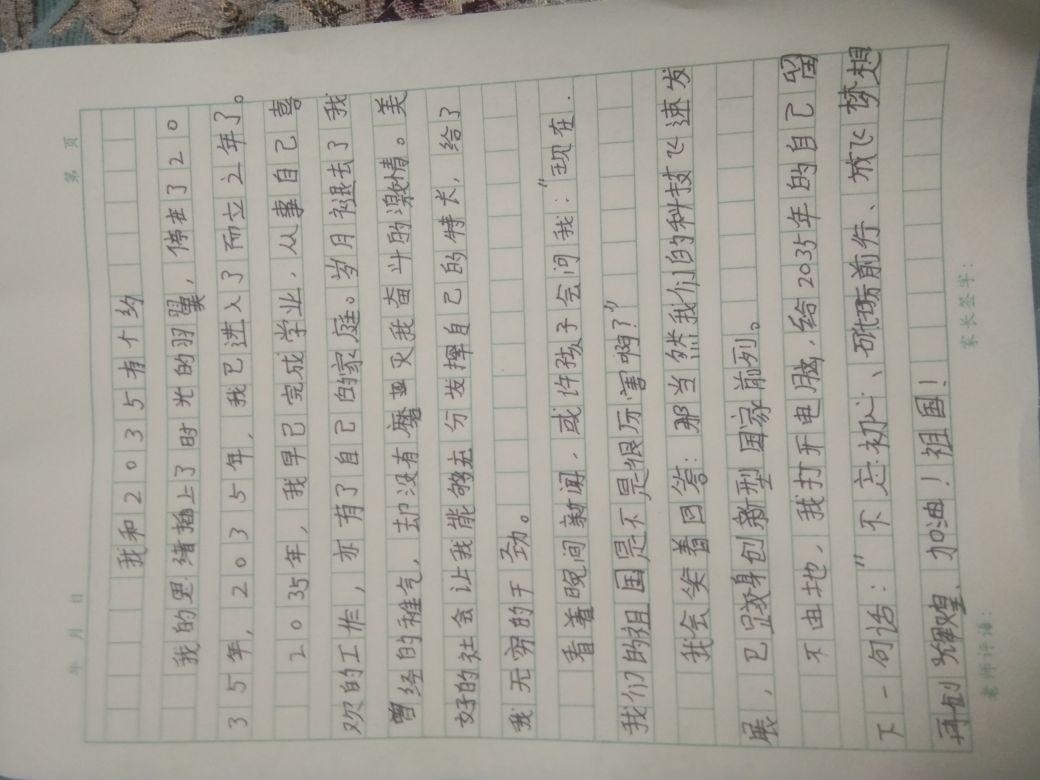 第 页
年 月 日
我和2035有个约
我的思绪插上了时光的羽翼，停在了20
35年，2035年，我已进入了而立之年了。
2035年，我早已完成学业，从事自己喜
欢的工作，亦有了自己的家庭。岁月褪去了我
曾经的稚气，却没有磨灭我奋斗的激情。美
好的社会让我能够充分发挥自己的特长，给了
我无穷的干劲。
看着晚间新闻，或许孩子会问我：“现在
我们的祖国是不是很厉害啊？”
我会笑着回答：那当然我们的科技飞速发
展，已跻身创新型国家前列。
不由地，我打开电脑，给2035年的自己留
下一句话：“不忘初心、砥砺前行、放飞梦想
再创辉煌、加油！祖国！
老师评语：
家长签字：